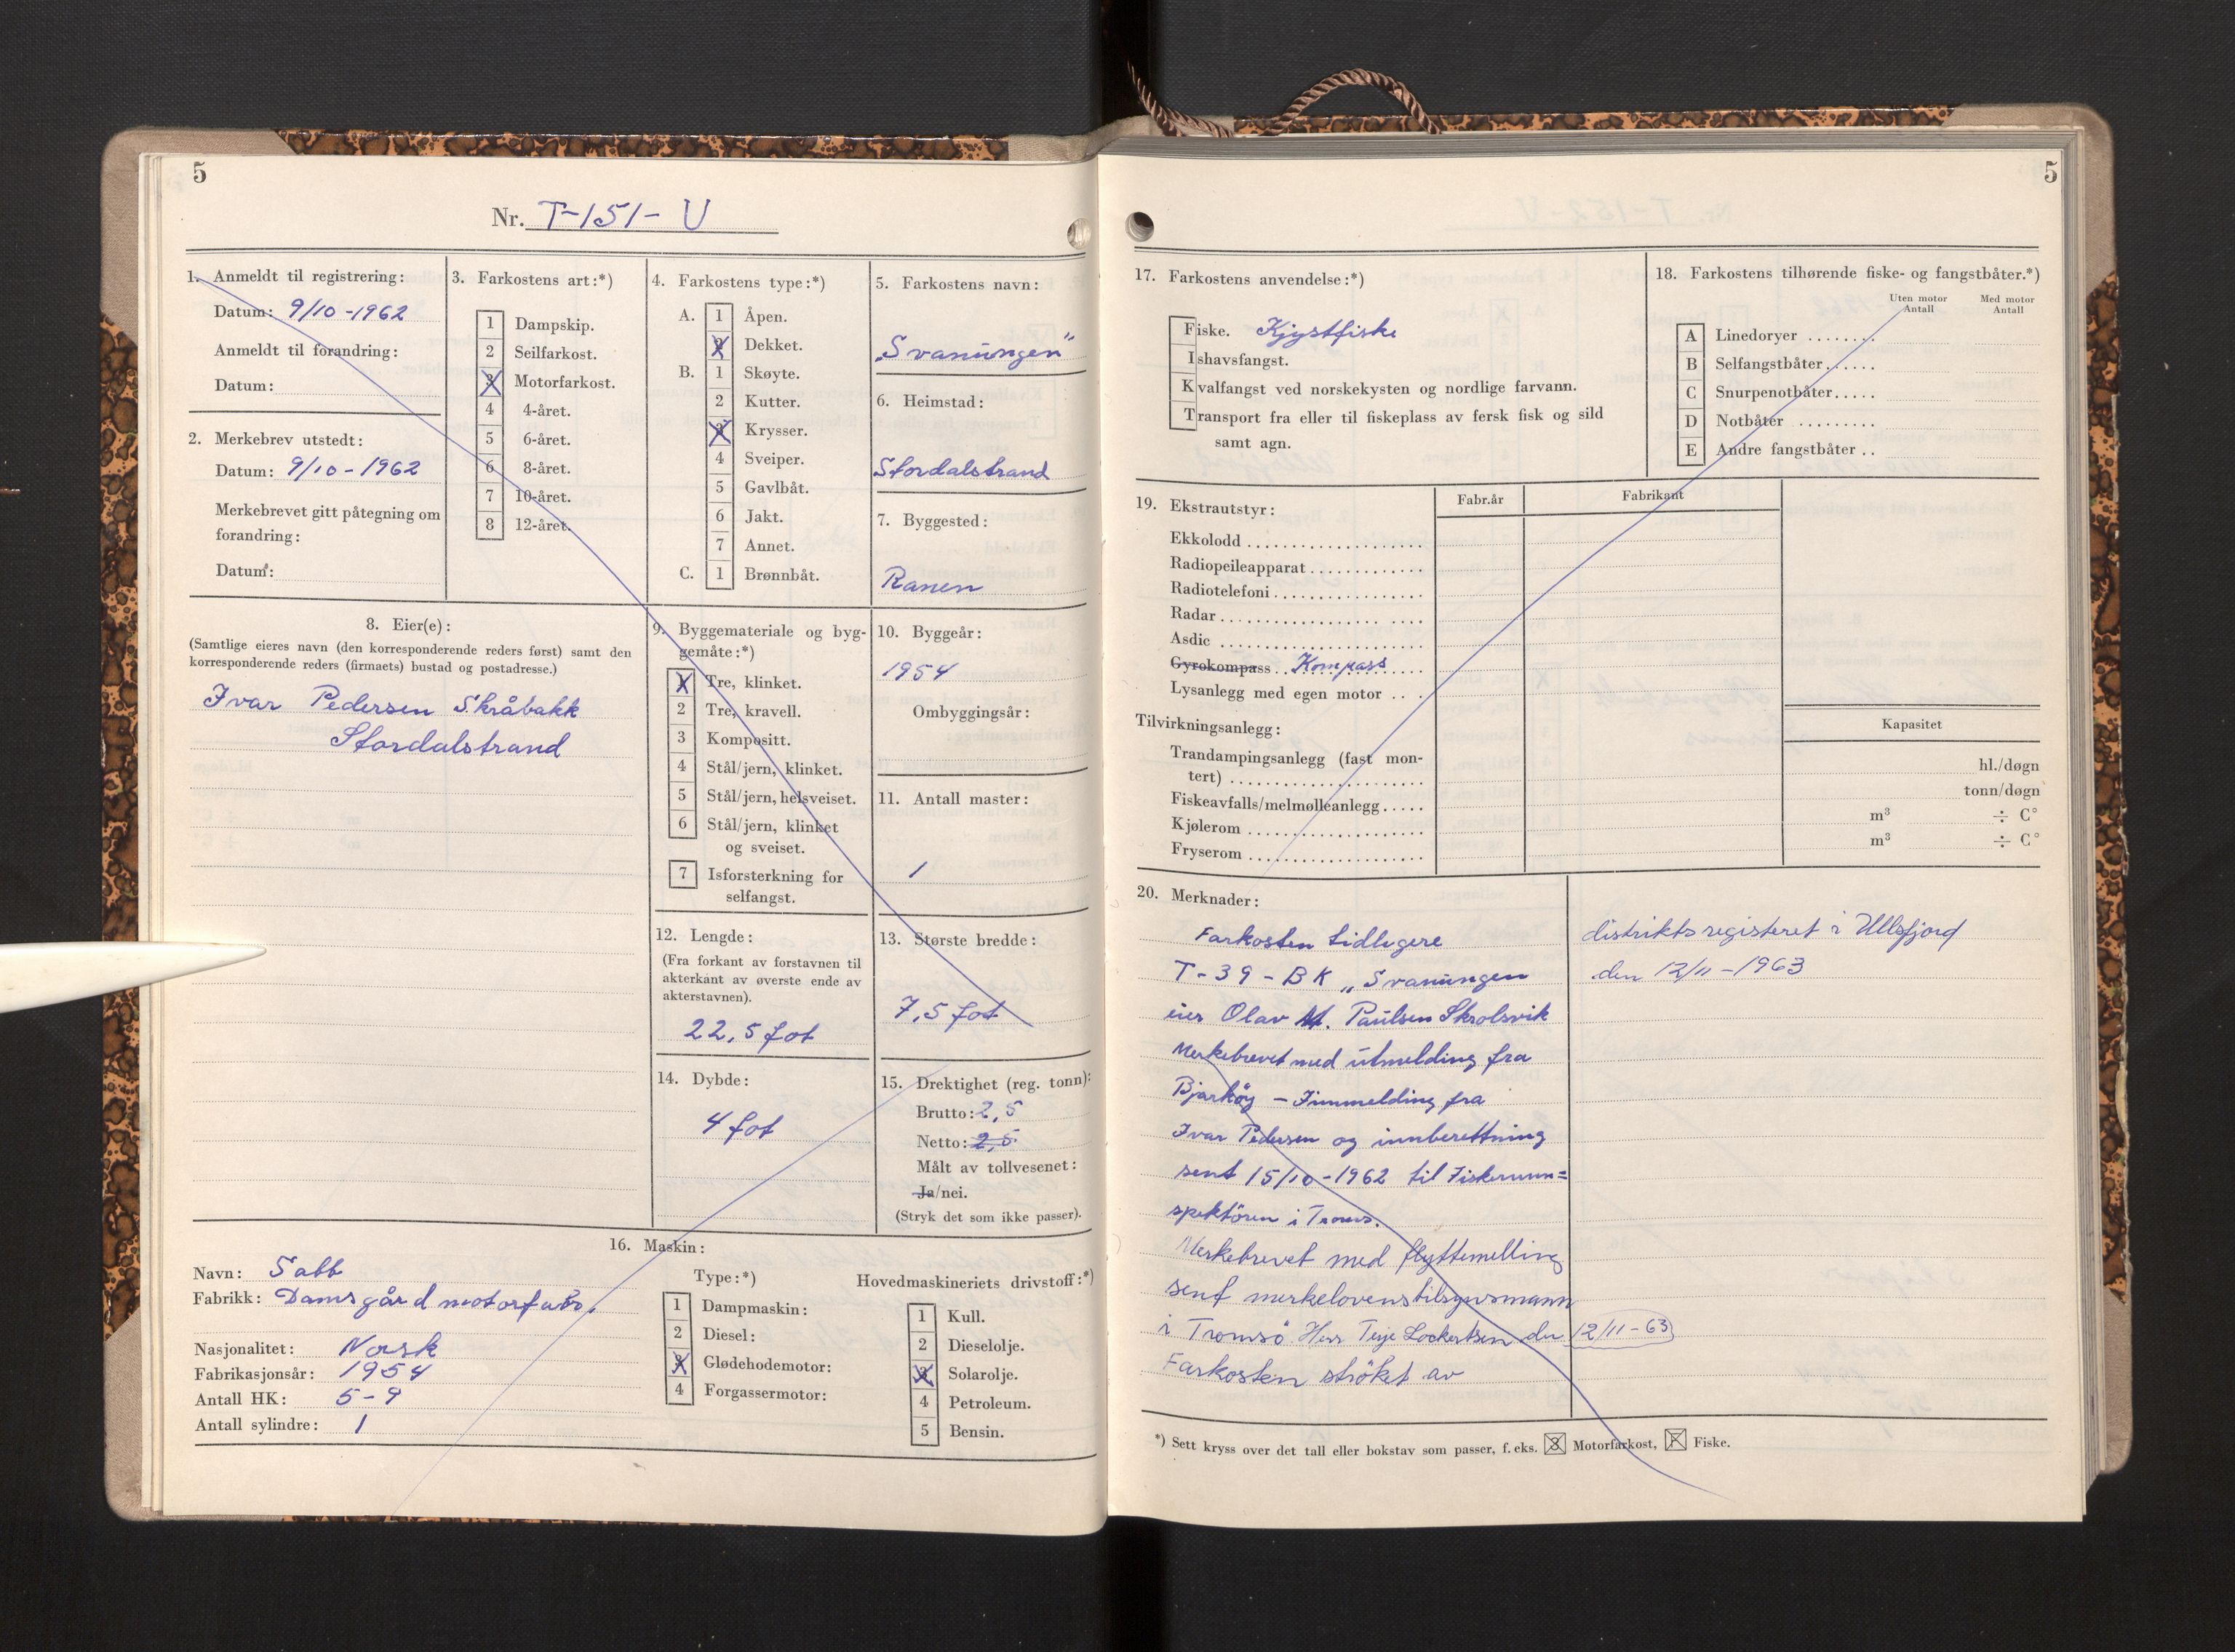 5
Nr. T-151-U
1. Anmeldt til registrering:
Datum: 9/10-1962
Anmeldt til forandring:
Datum:
2. Merkebrev utstedt:
Datum: 9/10-1962
Merkebrevet gitt påtegning om
forandring:
Datum:
3. Farkostens art:*)
1 Dampskip.
2 Seilfarkost.
3 Motorfarkost.
4 4-året.
5 6-året.
6 8-året.
7 10-året.
8 12-året.
4. Farkostens type:*)
A. 1 Åpen.
2 Dekket.
B. 1 Skøyte.
2 Kutter.
3 Krysser.
4 Sveiper.
5 Gavlbåt.
6 Jakt.
7 Annet.
C. 1 Brønnbåt.
5. Farkostens navn:
„Svanungen"
6. Heimstad:
Stordalstrand
7. Byggested:
Ranen
8. Eier(e):
(Samtlige eieres navn (den korresponderende reders først) samt den
korresponderende reders (firmaets) bustad og postadresse.)
Ivar Pedersen Skråbakk
Stordalstrand
9. Byggemateriale og byg-
gemåte:*)
1 Tre, klinket.
2 Tre, kravell.
3 Kompositt.
4 Stål/jern, klinket.
5 Stål/jern, helsveiset.
6 Stål/jern, klinket
og sveiset.
7 Isforsterkning for
selfangst.
10. Byggeår:
1954
Ombyggingsår:
11. Antall master:
1
12. Lengde:
(Fra forkant av forstavnen til
akterkant av øverste ende av
akterstavnen).
22,5 fot
13. Største bredde:
7,5 fot
14. Dybde:
4 fot
15. Drektighet (reg. tonn):
Brutto: 2,5
Netto: 2,5
Målt av tollvesenet:
Ja/nei.
(Stryk det som ikke passer).
16. Maskin:
Navn: Sabb
Fabrikk: Damsgård motorfabr.
Nasjonalitet: Norsk
Fabrikasjonsår: 1954
Antall HK: 5-9
Antall sylindre: 1
Type:*)
1 Dampmaskin:
2 Diesel:
3 Glødehodemotor:
4 Forgassermotor:
Hovedmaskineriets drivstoff:*)
1 Kull.
2 Dieselolje.
3 Solarolje.
4 Petroleum.
5 Bensin.
5
17. Farkostens anvendelse:*)
Fiske. Kjystfiske
Ishavsfangst.
Kvalfangst ved norskekysten og nordlige farvann.
Transport fra eller til fiskeplass av fersk fisk og sild
samt agn.
18. Farkostens tilhørende fiske- og fangstbåter.*)
Uten motor Antall
Med motor Antall
A Linedoryer
B Selfangstbåter
C Snurpenotbåter
D Notbåter
E Andre fangstbåter
19. Ekstrautstyr:
Fabr.år
Fabrikant
Ekkolodd
Radiopeileapparat
Radiotelefoni
Radar
Asdic
Gyrokompass Kompass
Lysanlegg med egen motor
Tilvirkningsanlegg:
Kapasitet
Trandampingsanlegg (fast mon-
tert) hl./døgn
Fiskeavfalls/melmølleanlegg tonn/døgn
Kjølerom m³ ÷ C°
Fryserom m³ ÷ C°
20. Merknader:
Farkosten tidligere
T-39-BK „Svanungen
eier Olav M. Paulsen Skrolsvik
Merkebrevet med utmelding fra
Bjarköy - Innmelding fra
Ivar Pedersen og innberettning
sent 15/10-1962 til Fiskerinn=
spektören i Troms.
Merkebrevet med flyttemelling
sent merkelovenstilsynsmann
i Tromsö Herr Terje Lockertsen den 12/11-63
Farkosten ströket av
distriktsregisteret i Ullsfjord
den 12/11-1963
*) Sett kryss over det tall eller bokstav som passer, f. eks. 3 Motorfarkost, F Fiske.